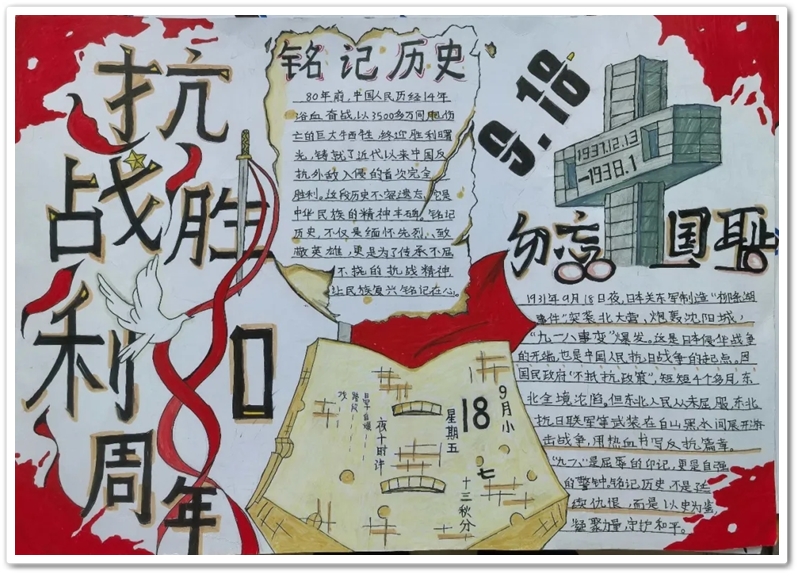 抗
战胜
利 80
周年
铭记历史
80年前,中国人民历经14年
浴血奋战,以3500多万同胞伤
亡的巨大牺牲,终迎胜利曙
光,铸就了近代以来中国反
抗外敌入侵的首次完全
胜利。这段历史不容遗忘,它是
中华民族的精神丰碑,铭记
历史,不仅是缅怀先烈、致
敬英雄,更是为了传承不屈
不挠的抗战精神,
让民族复兴铭记在心。
9.18
1937.12.13
—1938.1
勿忘国耻
1931年9月18日夜,日本关东军制造“柳条湖
事件”突袭北大营,炮轰沈阳城,
“九一八事变”爆发。这是日本侵华战争
的开端,也是中国人民抗日战争的起点。因
国民政府“不抵抗政策”,短短4个多月,东
北全境沦陷,但东北人民从未屈服,东北
抗日联军等武装在白山黑水间展开游
击战争,用热血书写反抗篇章。
“九一八”是屈辱的印记,更是自强
的警钟,铭记历史不是延
续仇恨,而是以史为鉴,
凝聚力量,守护和平。
9月小
18
星期五
七
十三秋分
夜十时许